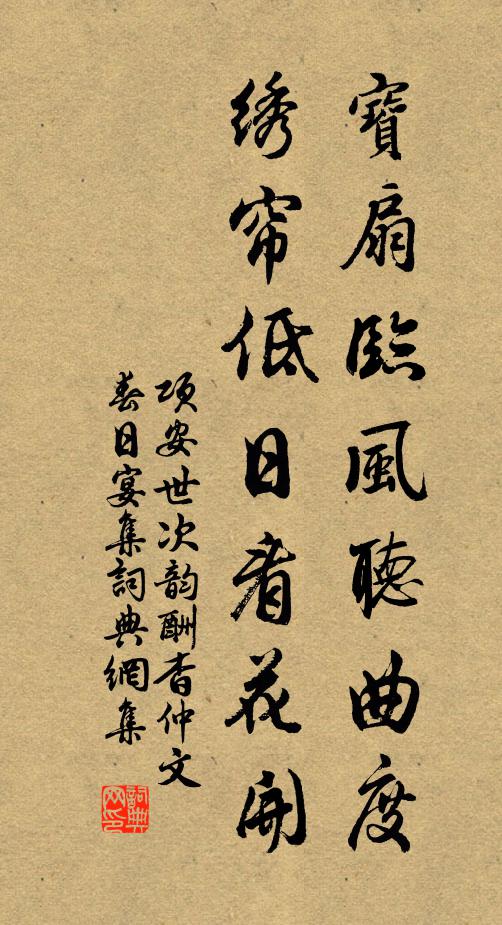 寶扇臨風聽曲度
绣帘低日看花開
项安世次韵酬杳仲文
春日宴集詞典網集
詞典網印